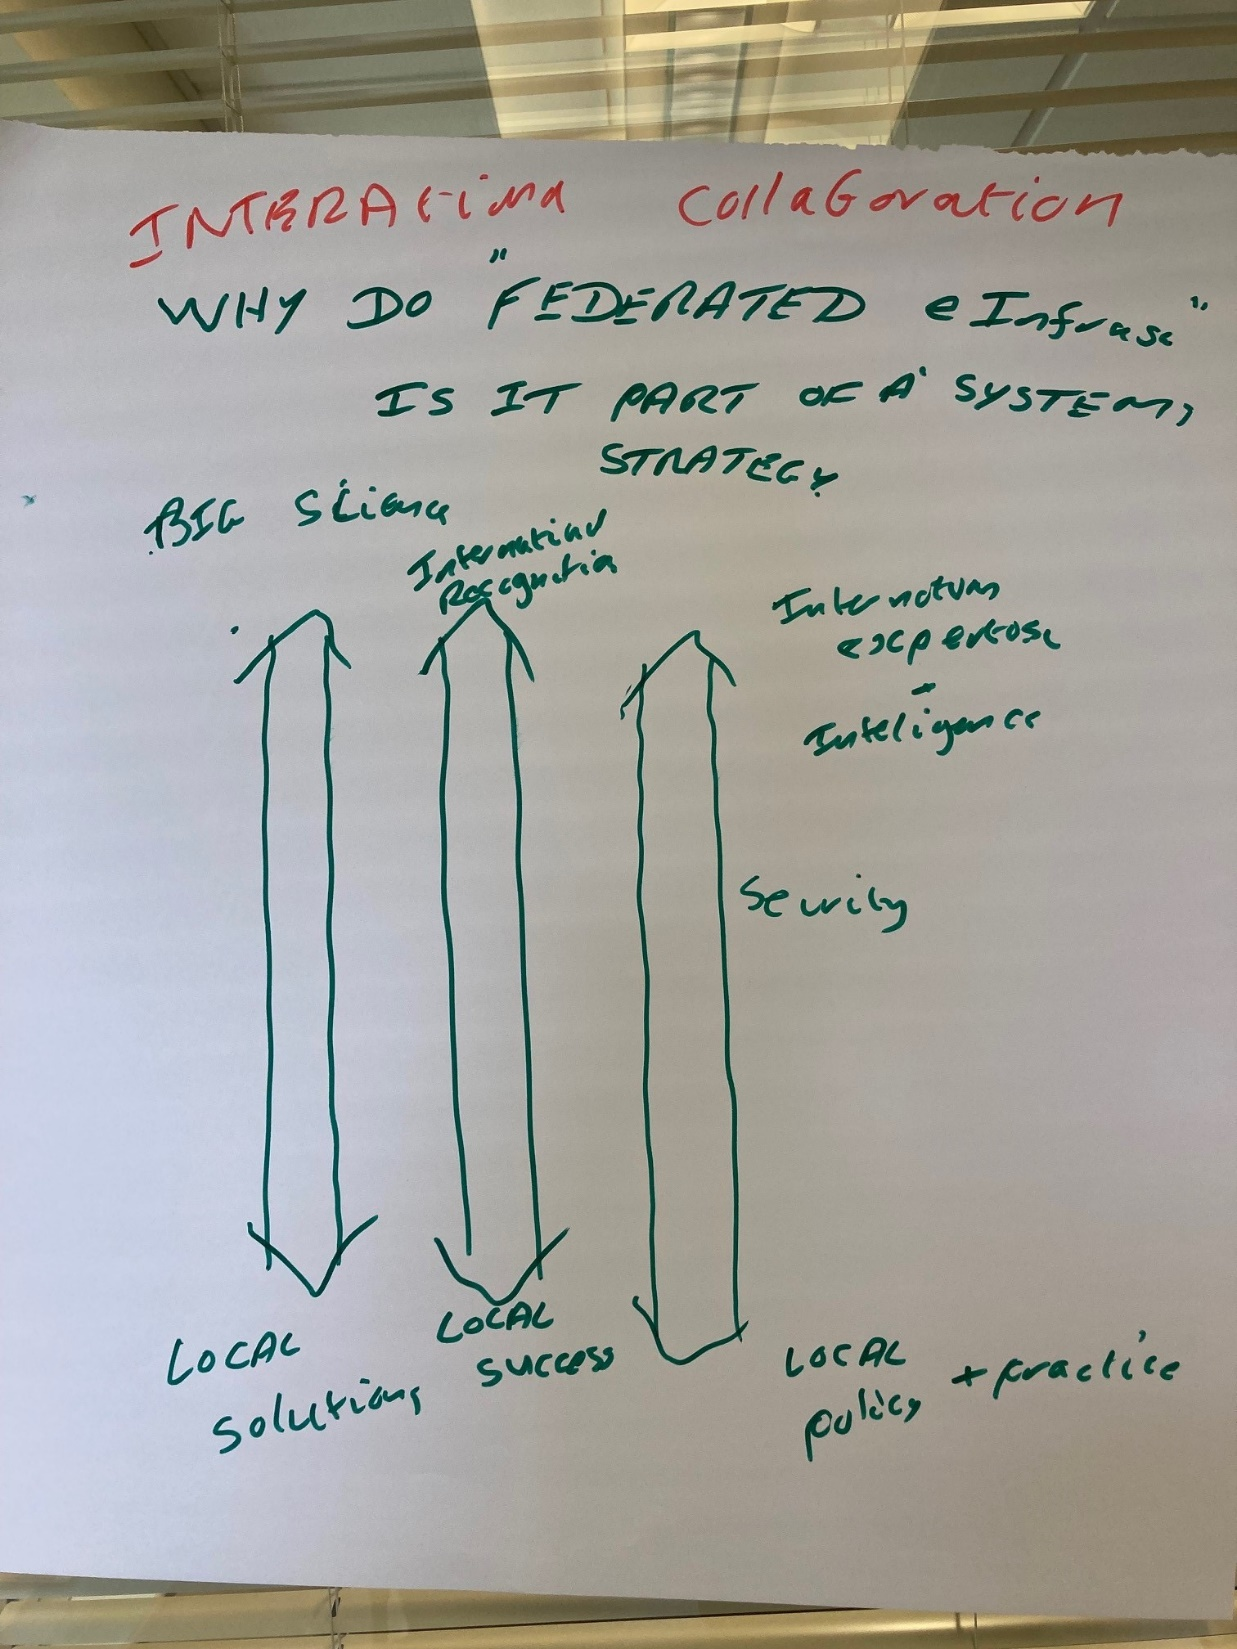 INTERNATIONAL COLLABORATION
WHY DO "FEDERATED eInfrasc"
IS IT PART OF A SYSTEM,
STRATEGY
BIG Science
International
Recognition
International
expertise
+
Inteligence
Security
LOCAL
solutions
LOCAL
success
LOCAL + practice
policy